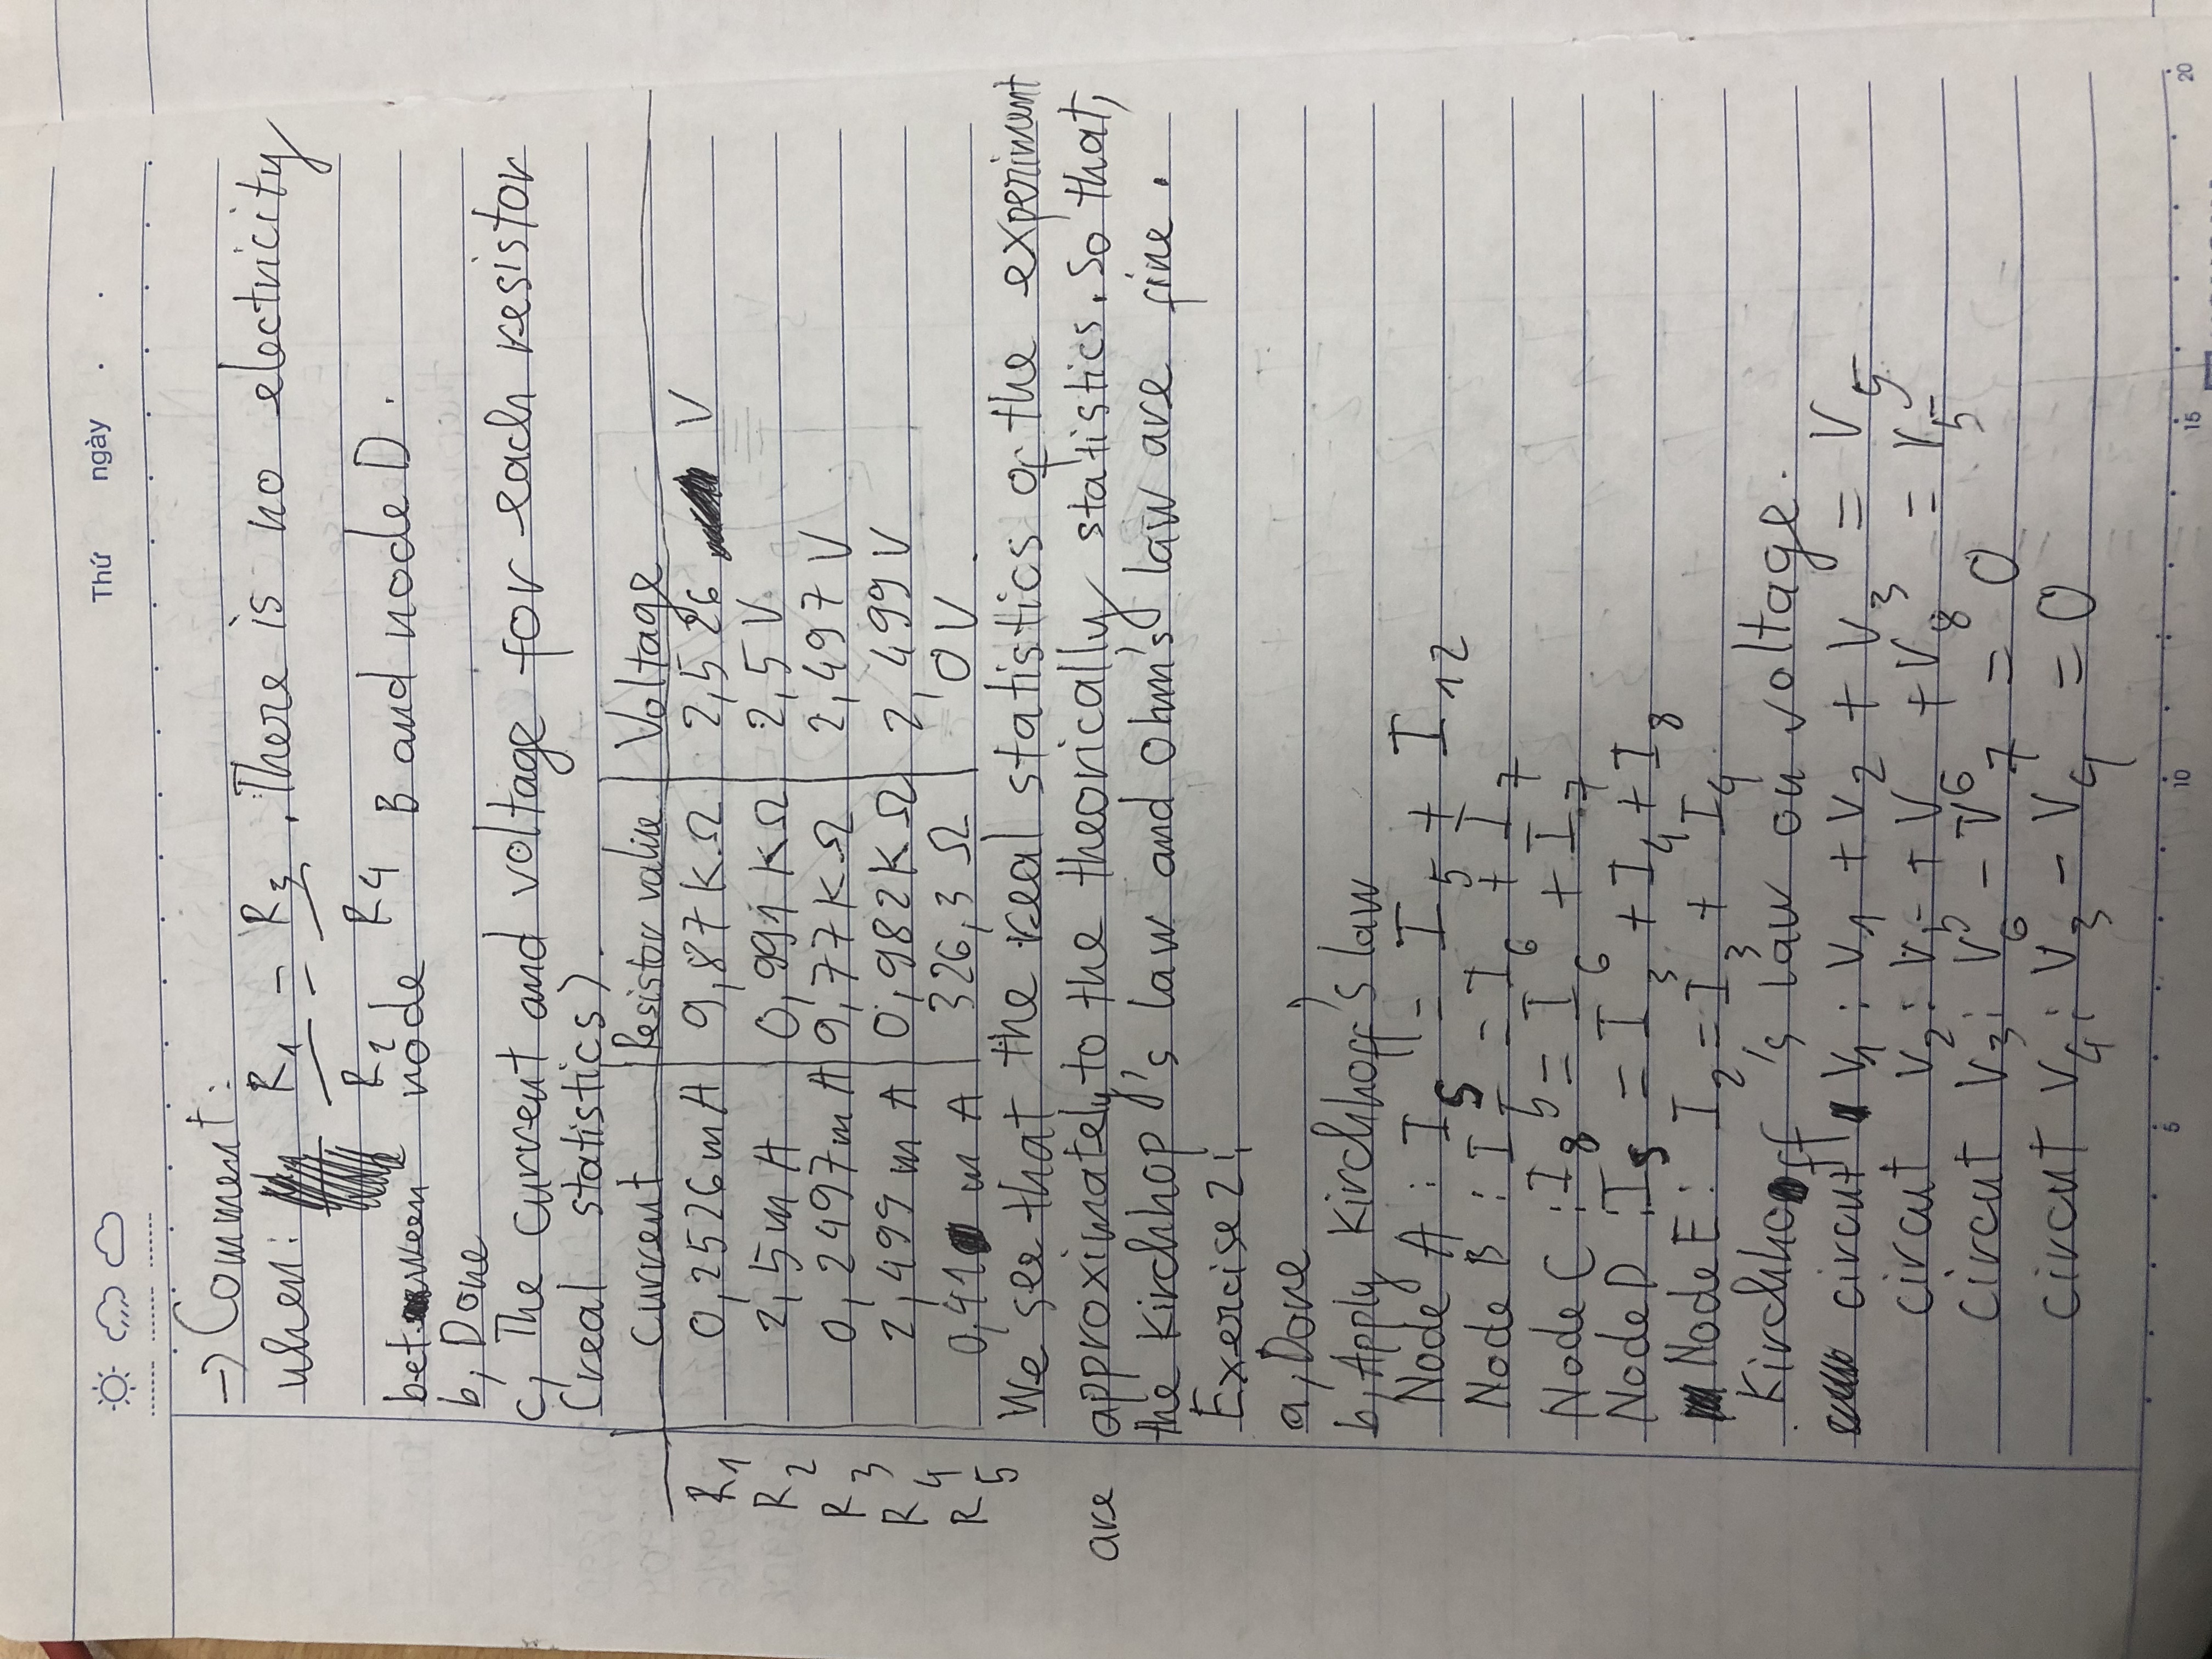 Thứ ngày . .
→ Comment:
when: R1/R2 = R3/R4 . There is no electricity
between node B and node D.
b, Done
c, The current and voltage for each resistor
(real statistics).
current Resistor value Voltage
R1 0,2526 mA 9,87 KΩ 2,526 V
R2 2,5 mA 0,991 KΩ 2,5 V
R3 0,2497 mA 9,77 KΩ 2,497 V
R4 2,499 mA 0,982 KΩ 2,499 V
R5 0,41 mA 326,3 Ω 0 V
We see that the real statistics of the experiment
are approximately to the theorically statistics. So that,
the Kirchhop's law and Ohm's law are fine.
Exercise 2:
a, Done
b, Apply Kirchhoff's law
Node A : IS = I5 + I12
Node B : I5 = I6 + I7
Node C : I8 = I6 + I7
Node D : IS = I3 + I4 + I8
Node E : I2 = I3 + I4
Kirchhoff's law on voltage.
circut V1 : V1 + V2 + V3 = V5
circut V2 : V5 + V6 + V8 = V5
circut V3 : V6 - V7 = 0
circut V4 : V3 - V4 = 0
5 10 15 20